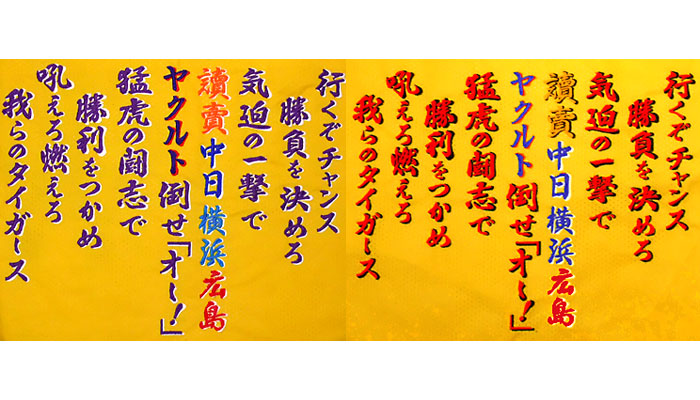 行くぞチャンス
勝負を決めろ
気迫の一撃で
讀賣中日横浜広島
ヤクルト倒せ「オ〜！」
猛虎の闘志で
勝利をつかめ
吼えろ燃えろ
我らのタイガース
行くぞチャンス
勝負を決めろ
気迫の一撃で
讀賣中日横浜広島
ヤクルト倒せ「オ〜！」
猛虎の闘志で
勝利をつかめ
吼えろ燃えろ
我らのタイガース